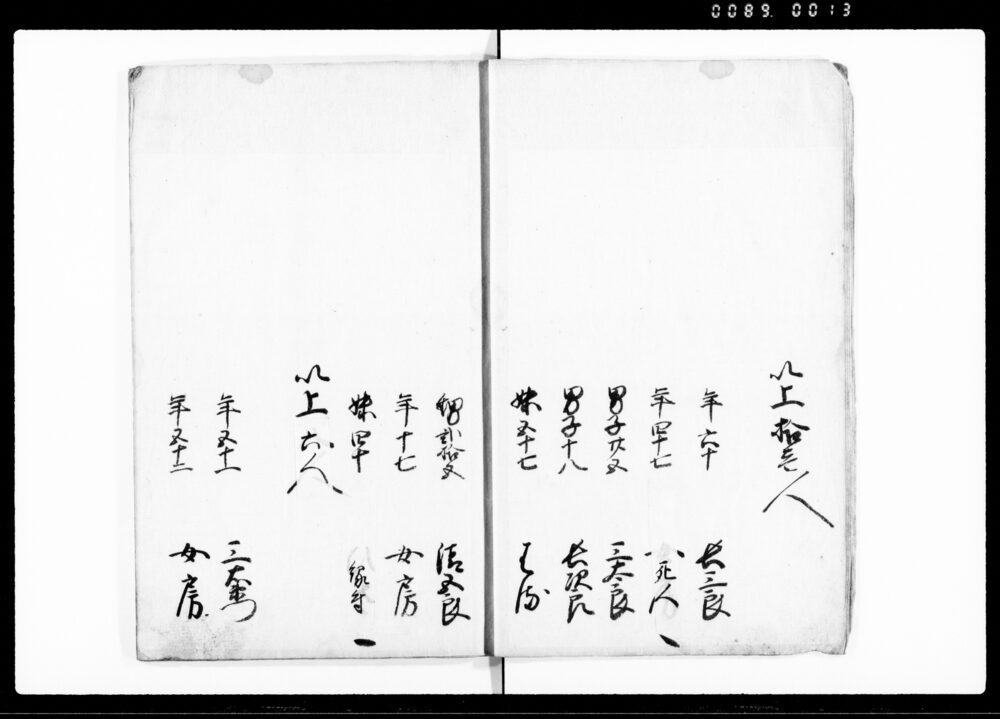 0089 0013
以上拾壱人
年六十 長三郎
年四十七 死人
男子廿五 三太郎
男子十八 長次郎
妹五十七
年十七 女房
妹四十 縁付
以上六人
年五十一
年五十二 女房